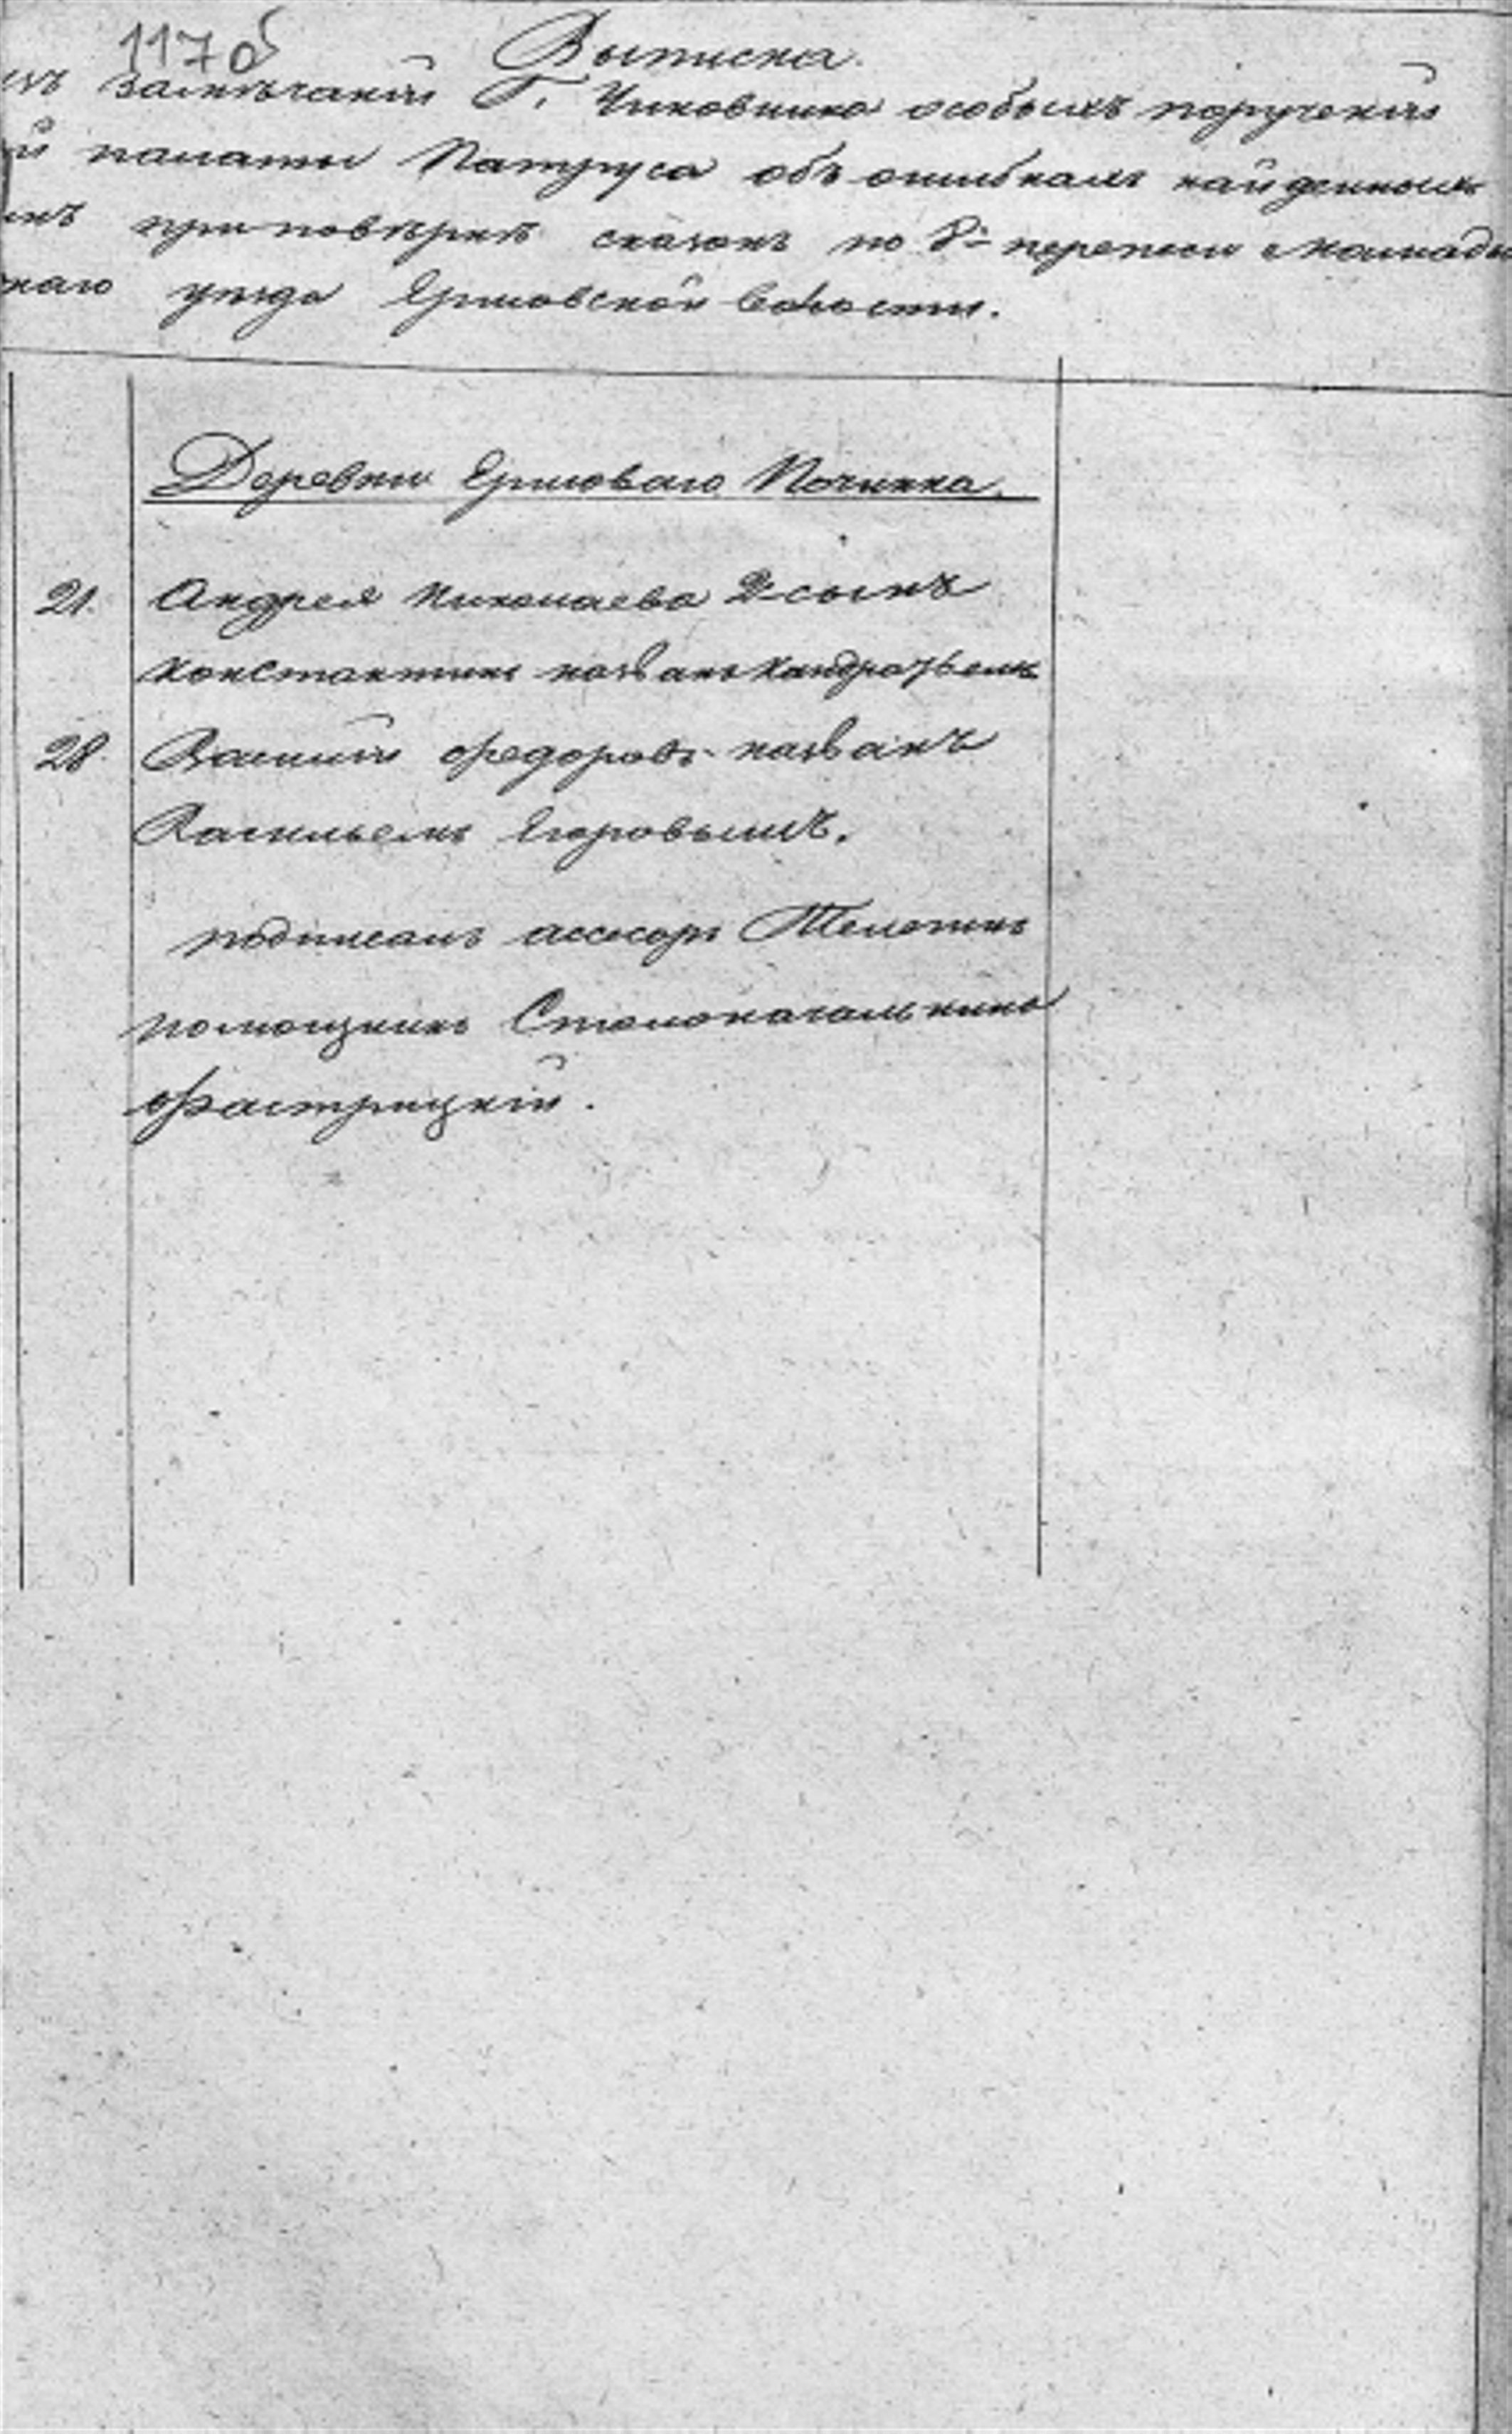 117об
Выписка.
изъ замѣчаній Г. Чиновника особыхъ порученій
й палаты Патруса объ ошибкахъ найденныхъ
имъ при повѣркѣ сказокъ по 8й переписи
скаго уѣзда Ершовской волости.
Деревни Ершоваго Починка.
21. Андрея Николаева 2й сынъ
Константинъ названъ
28. Василій Федоровъ названъ
Васильемъ Егоровымъ.
подписали ассесоръ
помощникъ Столоначальника